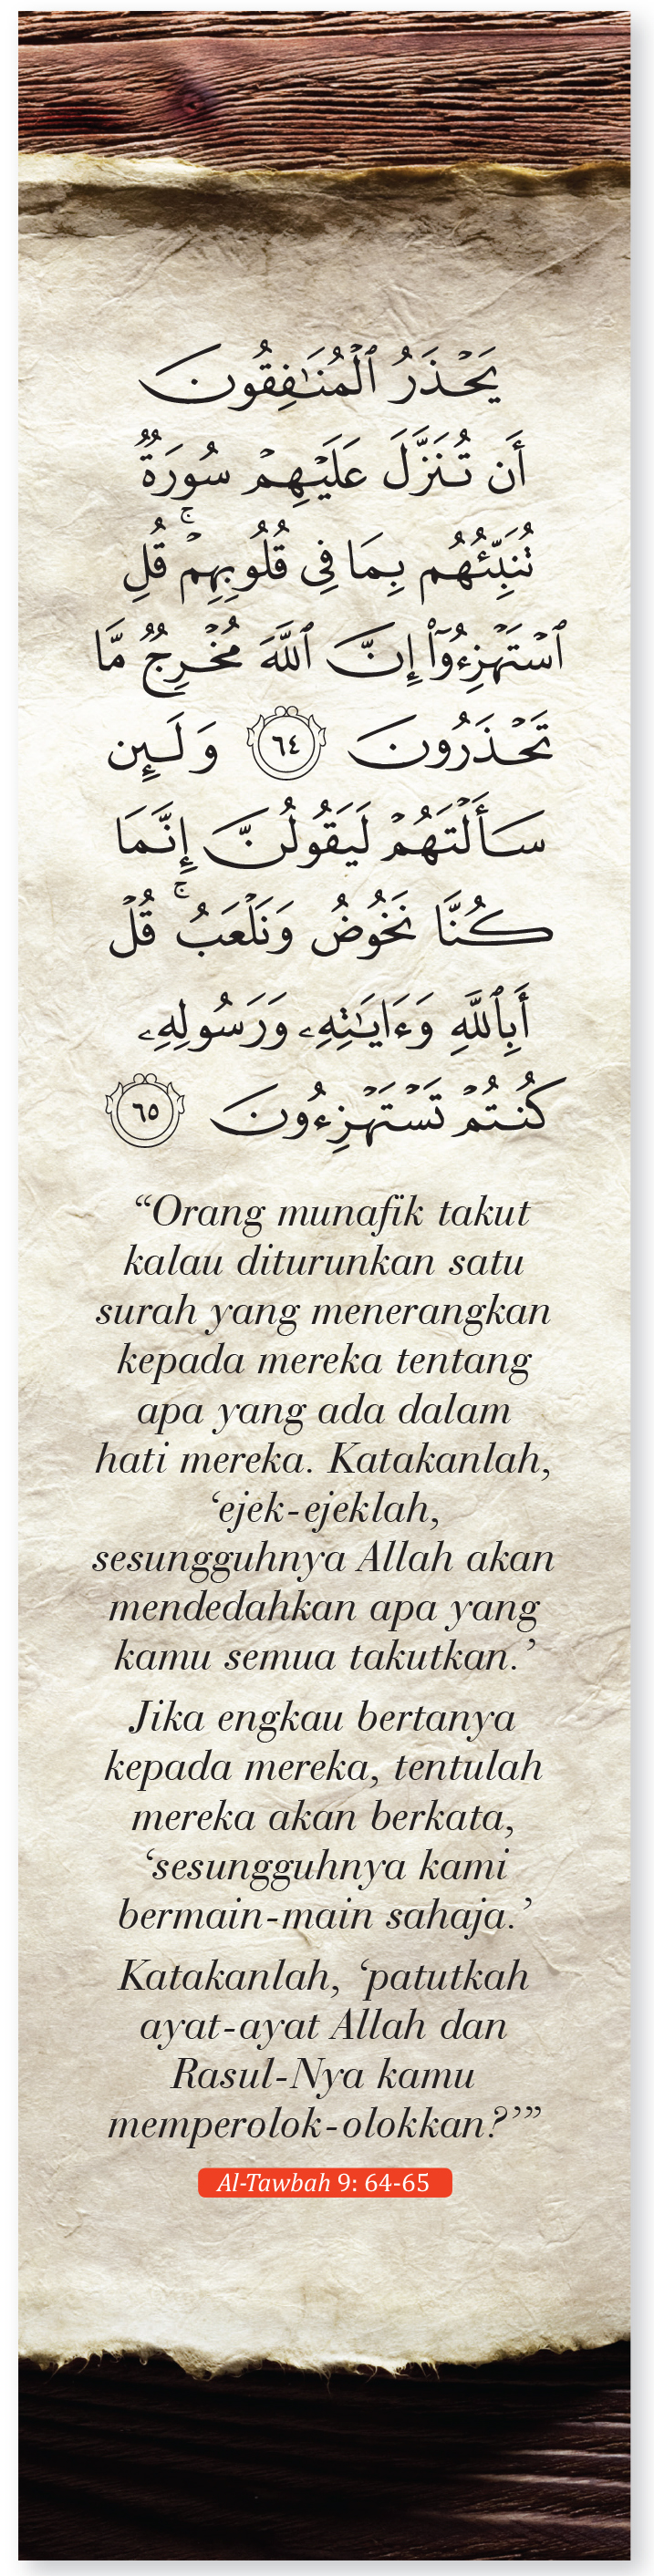 يَحْذَرُ ٱلْمُنَـٰفِقُونَ
أَن تُنَزَّلَ عَلَيْهِمْ سُورَةٌ
تُنَبِّئُهُم بِمَا فِى قُلُوبِهِمْ ۚ قُلِ
ٱسْتَهْزِءُوٓا۟ إِنَّ ٱللَّهَ مُخْرِجٌ مَّا
تَحْذَرُونَ ٦٤ وَلَئِن
سَأَلْتَهُمْ لَيَقُولُنَّ إِنَّمَا
كُنَّا نَخُوضُ وَنَلْعَبُ ۚ قُلْ
أَبِٱللَّهِ وَءَايَـٰتِهِۦ وَرَسُولِهِۦ
كُنتُمْ تَسْتَهْزِءُونَ ٦٥
“Orang munafik takut
kalau diturunkan satu
surah yang menerangkan
kepada mereka tentang
apa yang ada dalam
hati mereka. Katakanlah,
‘ejek-ejeklah,
sesungguhnya Allah akan
mendedahkan apa yang
kamu semua takutkan.’
Jika engkau bertanya
kepada mereka, tentulah
mereka akan berkata,
‘sesungguhnya kami
bermain-main sahaja.’
Katakanlah, ‘patutkah
ayat-ayat Allah dan
Rasul-Nya kamu
memperolok-olokkan?’”
Al-Tawbah 9: 64-65